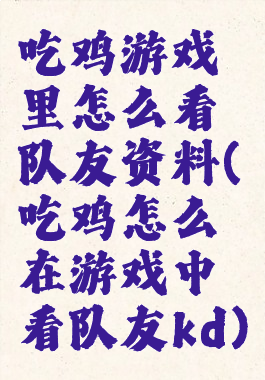 吃鸡游戏
里怎么看
队友资料(
吃鸡怎么
在游戏中
看队友kd)